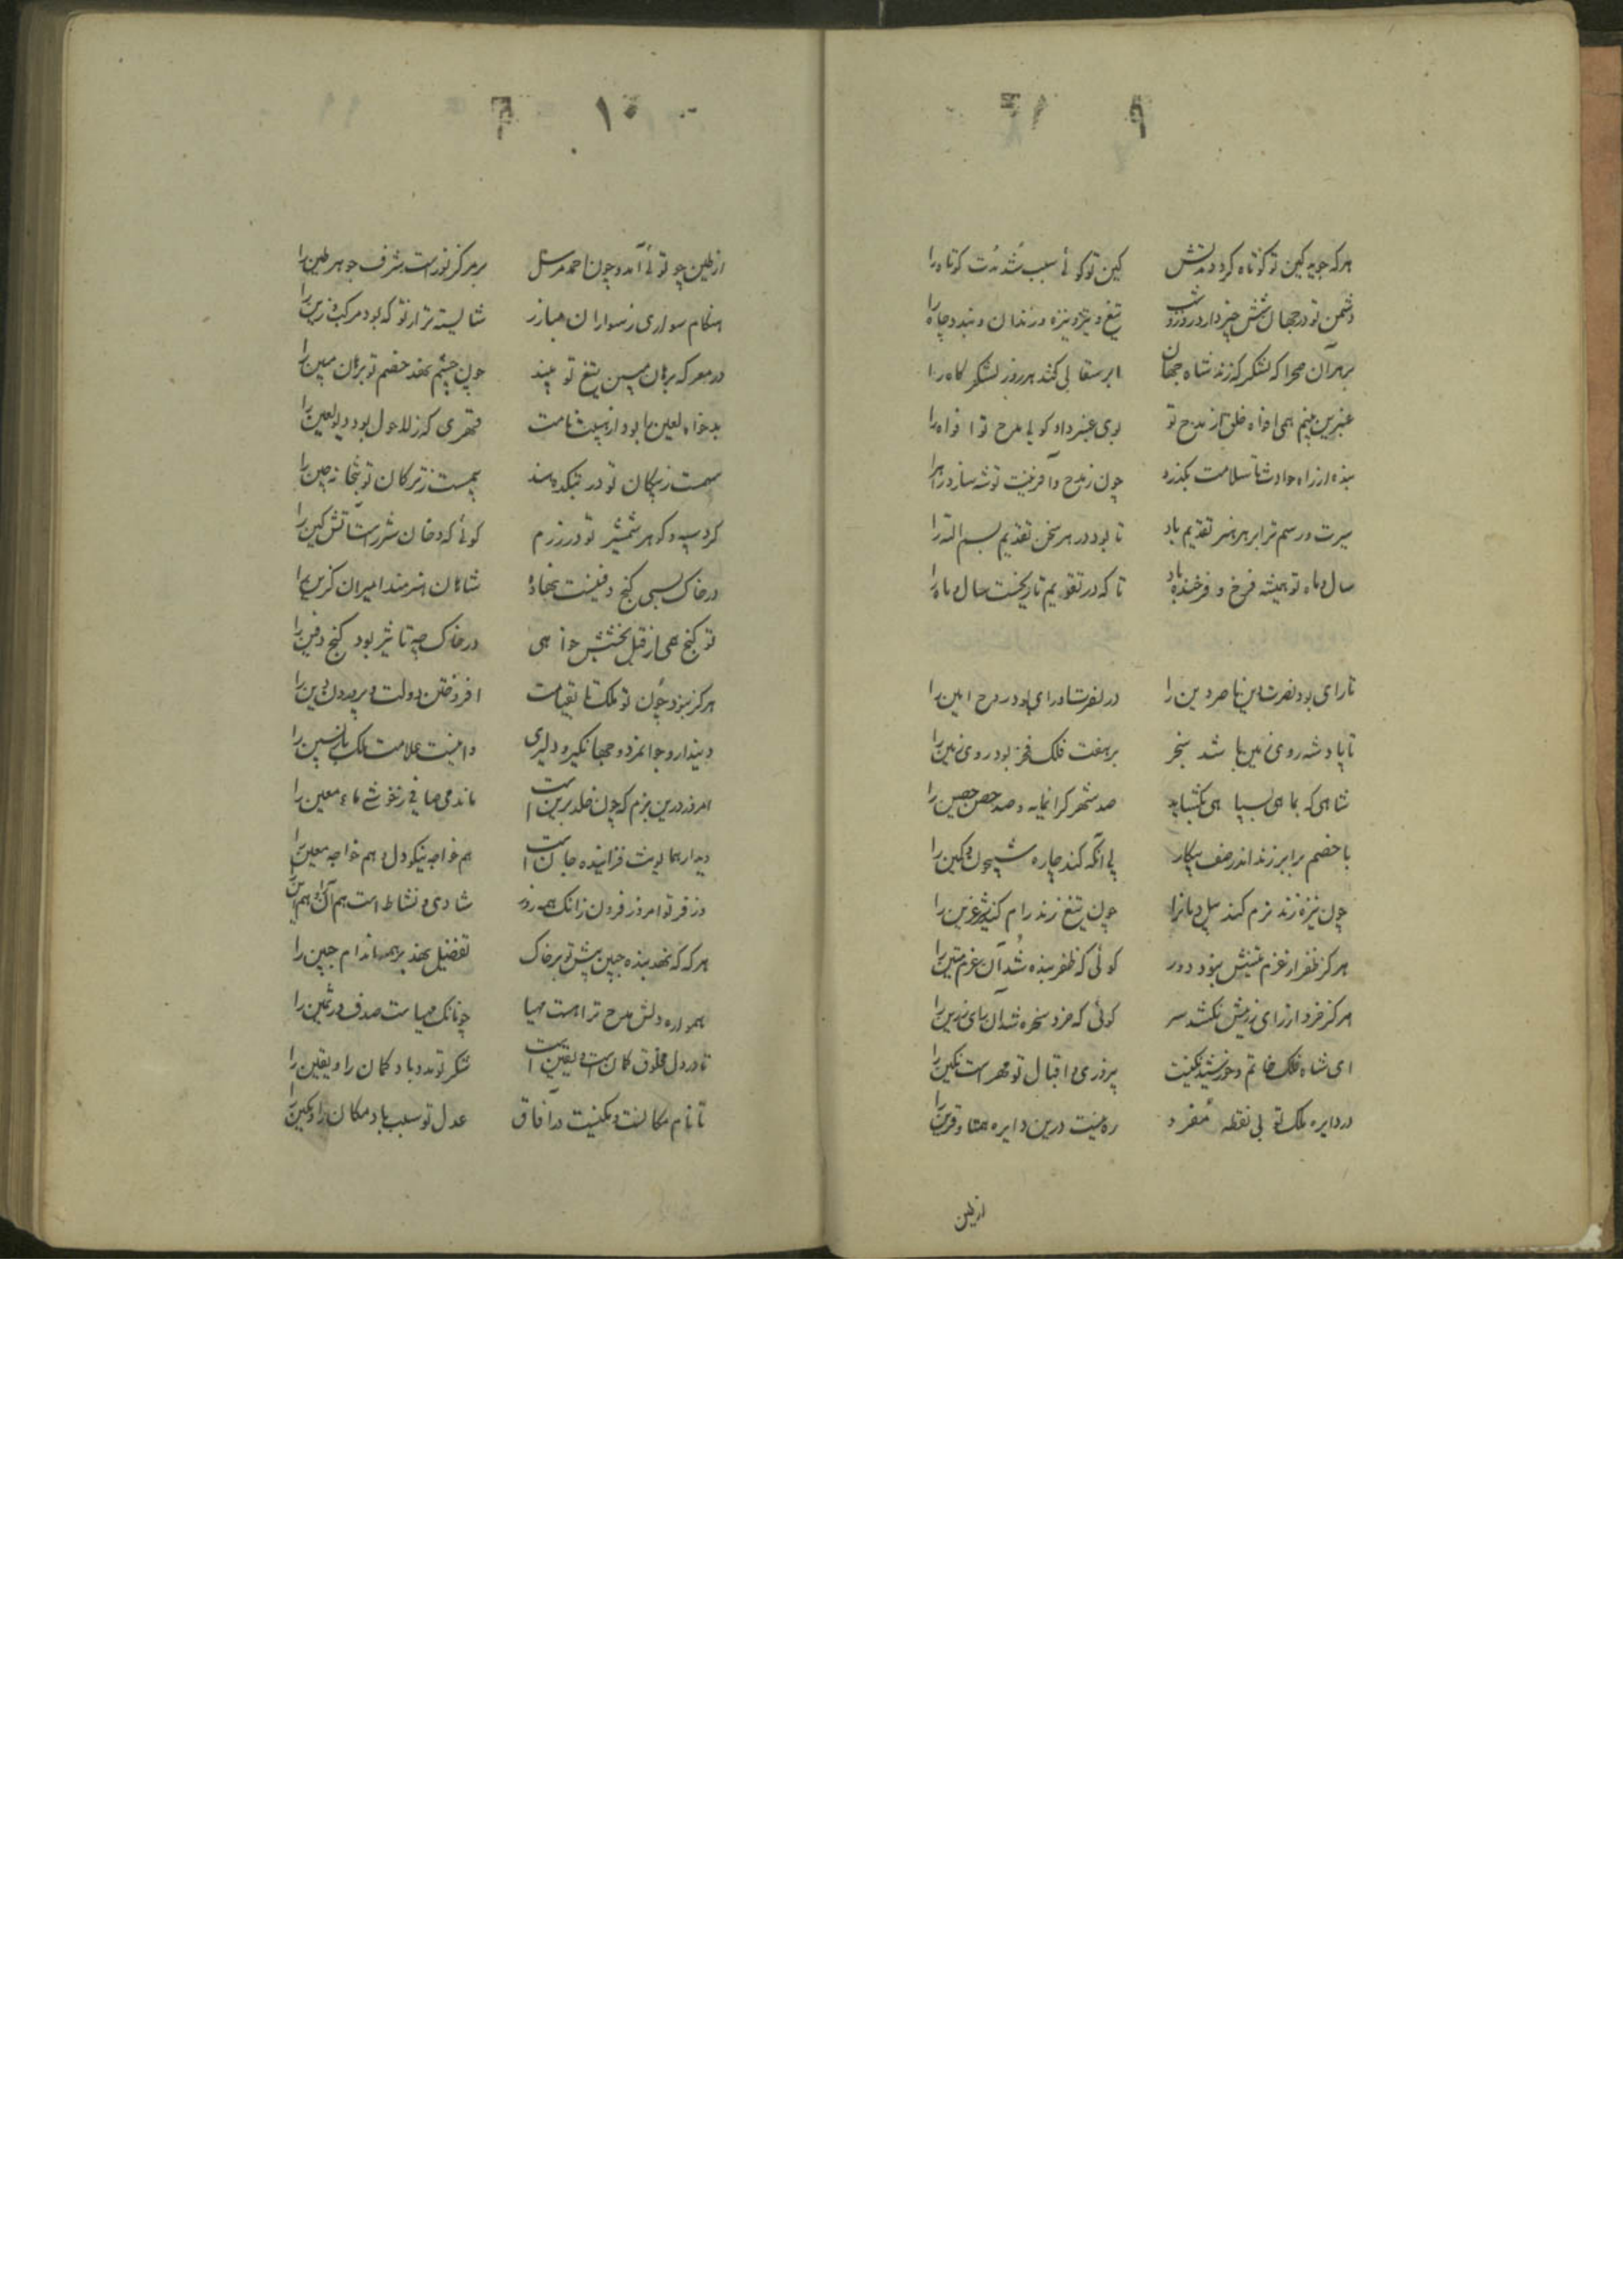 ۹
هرکه جوید کین تو کوتاه کردد مدتش کین تو کوئی سبب شد مدت کوتاه را
دشمن تو در جهان شش چیز دارد روز و شب تیغ و تیر و نیزه و زندان و بند و چاه را
بر هر آن صحرا که لشکرکه زند شاه جهان ابر سقایی کند هر روز لشکرکاه را
عنبرین بینم همی افواه خلق از مدح تو بوی عنبر داد کویی مدح تو افواه را
بنده از راه حوادث با سلامت بکذرد چون ز مدح و آفرینت توشه سازد راه را
سیرت و رسم ترا بر هر هنر تقدیم باد تا بود در هر سخن تقدیم بسم الله را
سال و ماه تو همیشه فرخ و فرخنده باد تا که در تقویم تاریخست سال و ماه را
تا رای بود نصرت دین ناصر دین را در نصرت او رای بود روح امین را
تا پادشه روی زمین باشد سنجر بر هفت فلک فخر بود روی زمین را
شاهی که بماهی بسپاهی بکشاید صد شهر کرانمایه و صد حصن حصین را
با خصم برابر زند اندر صف پیکار بی آنکه کند چاره شبیخون و کمین را
چون نیزه زند نرم کند پیل دمانرا چون تیغ زند رام کند شیر عرین را
هرکز ظفر از عزم متینش نبود دور کوئی که ظفر بنده شد آن عزم متین را
هرکز خرد از رای رزینش نکشد سر کوئی که خرد سخره شد آن رای رزین را
ای شاه فلک خاتم و خورشید نکینت پیروزی و اقبال تو مهر است نکین را
در دایره ملک تویی نقطه مفرد ره نیست درین دایره همتا و قرین را
از طین
۱۰
از طین چو تویی آمد و چون احمد مرسل بر مرکز نور است شرف جوهر طین را
هنکام سواری ز سواران مبارز شایسته تر از تو که بود مرکب و زین را
در معرکه برهان مبین تیغ تو بیند چون چشم نهد خصم تو برهان مبین را
بدخواه لعین را بود از هیبت نامت قهری که ز لاحول بود دیو لعین را
سهمست ز پیکان تو در بتکده هند بیمست ز ترکان تو بتخانه چین را
کرد سپه و کوهر شمشیر تو در رزم کوئی که دخان و شرر است آتش کین را
در خاک بسی کنج و دفینست نهاده شاهان هنرمند امیران کزین را
تو کنج همی از قبل بخشش خواهی در خاک چه تاثیر بود کنج دفین را
هرکز نبود چون تو ملک تا بقیامت افروختن دولت و پروردن دین را
دیندار و جوانمرد و جهانکیر و دلیری و اینست علامت ملک بازپسین را
امروز درین بزم که چون خلد برین است ماند می صافی ز خوشی ماء معین را
دیدار همایونت فزاینده جان است هم خواجه نیکو دل و هم خواجه معین را
وز فر تو امروز فزون زانک همه روز شادی و نشاط است هم آن را و هم این را
هرکه که نهد بنده جبین پیش تو بر خاک تفضیل نهد بر همه اندام جبین را
همواره دلش مدح ترا هست مهیا چونانک مهیاست صدف در ثمین را
تا در دل مخلوق کمان است و یقین است شکر تو مدد باد کمان را و یقین را
تا نام مکانست و مکینست در آفاق عدل تو سبب باد مکان را و مکین را